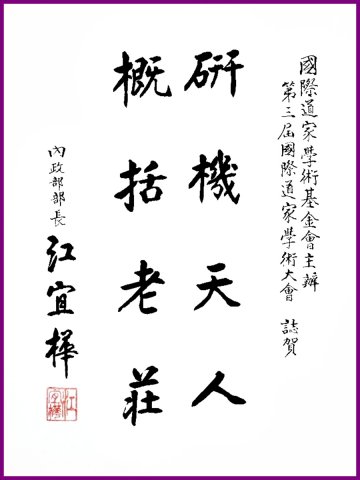 國際道家學術基金會主辦
第三屆國際道家學術大會 誌賀
研機天人
概括老莊
內政部部長 江宜樺